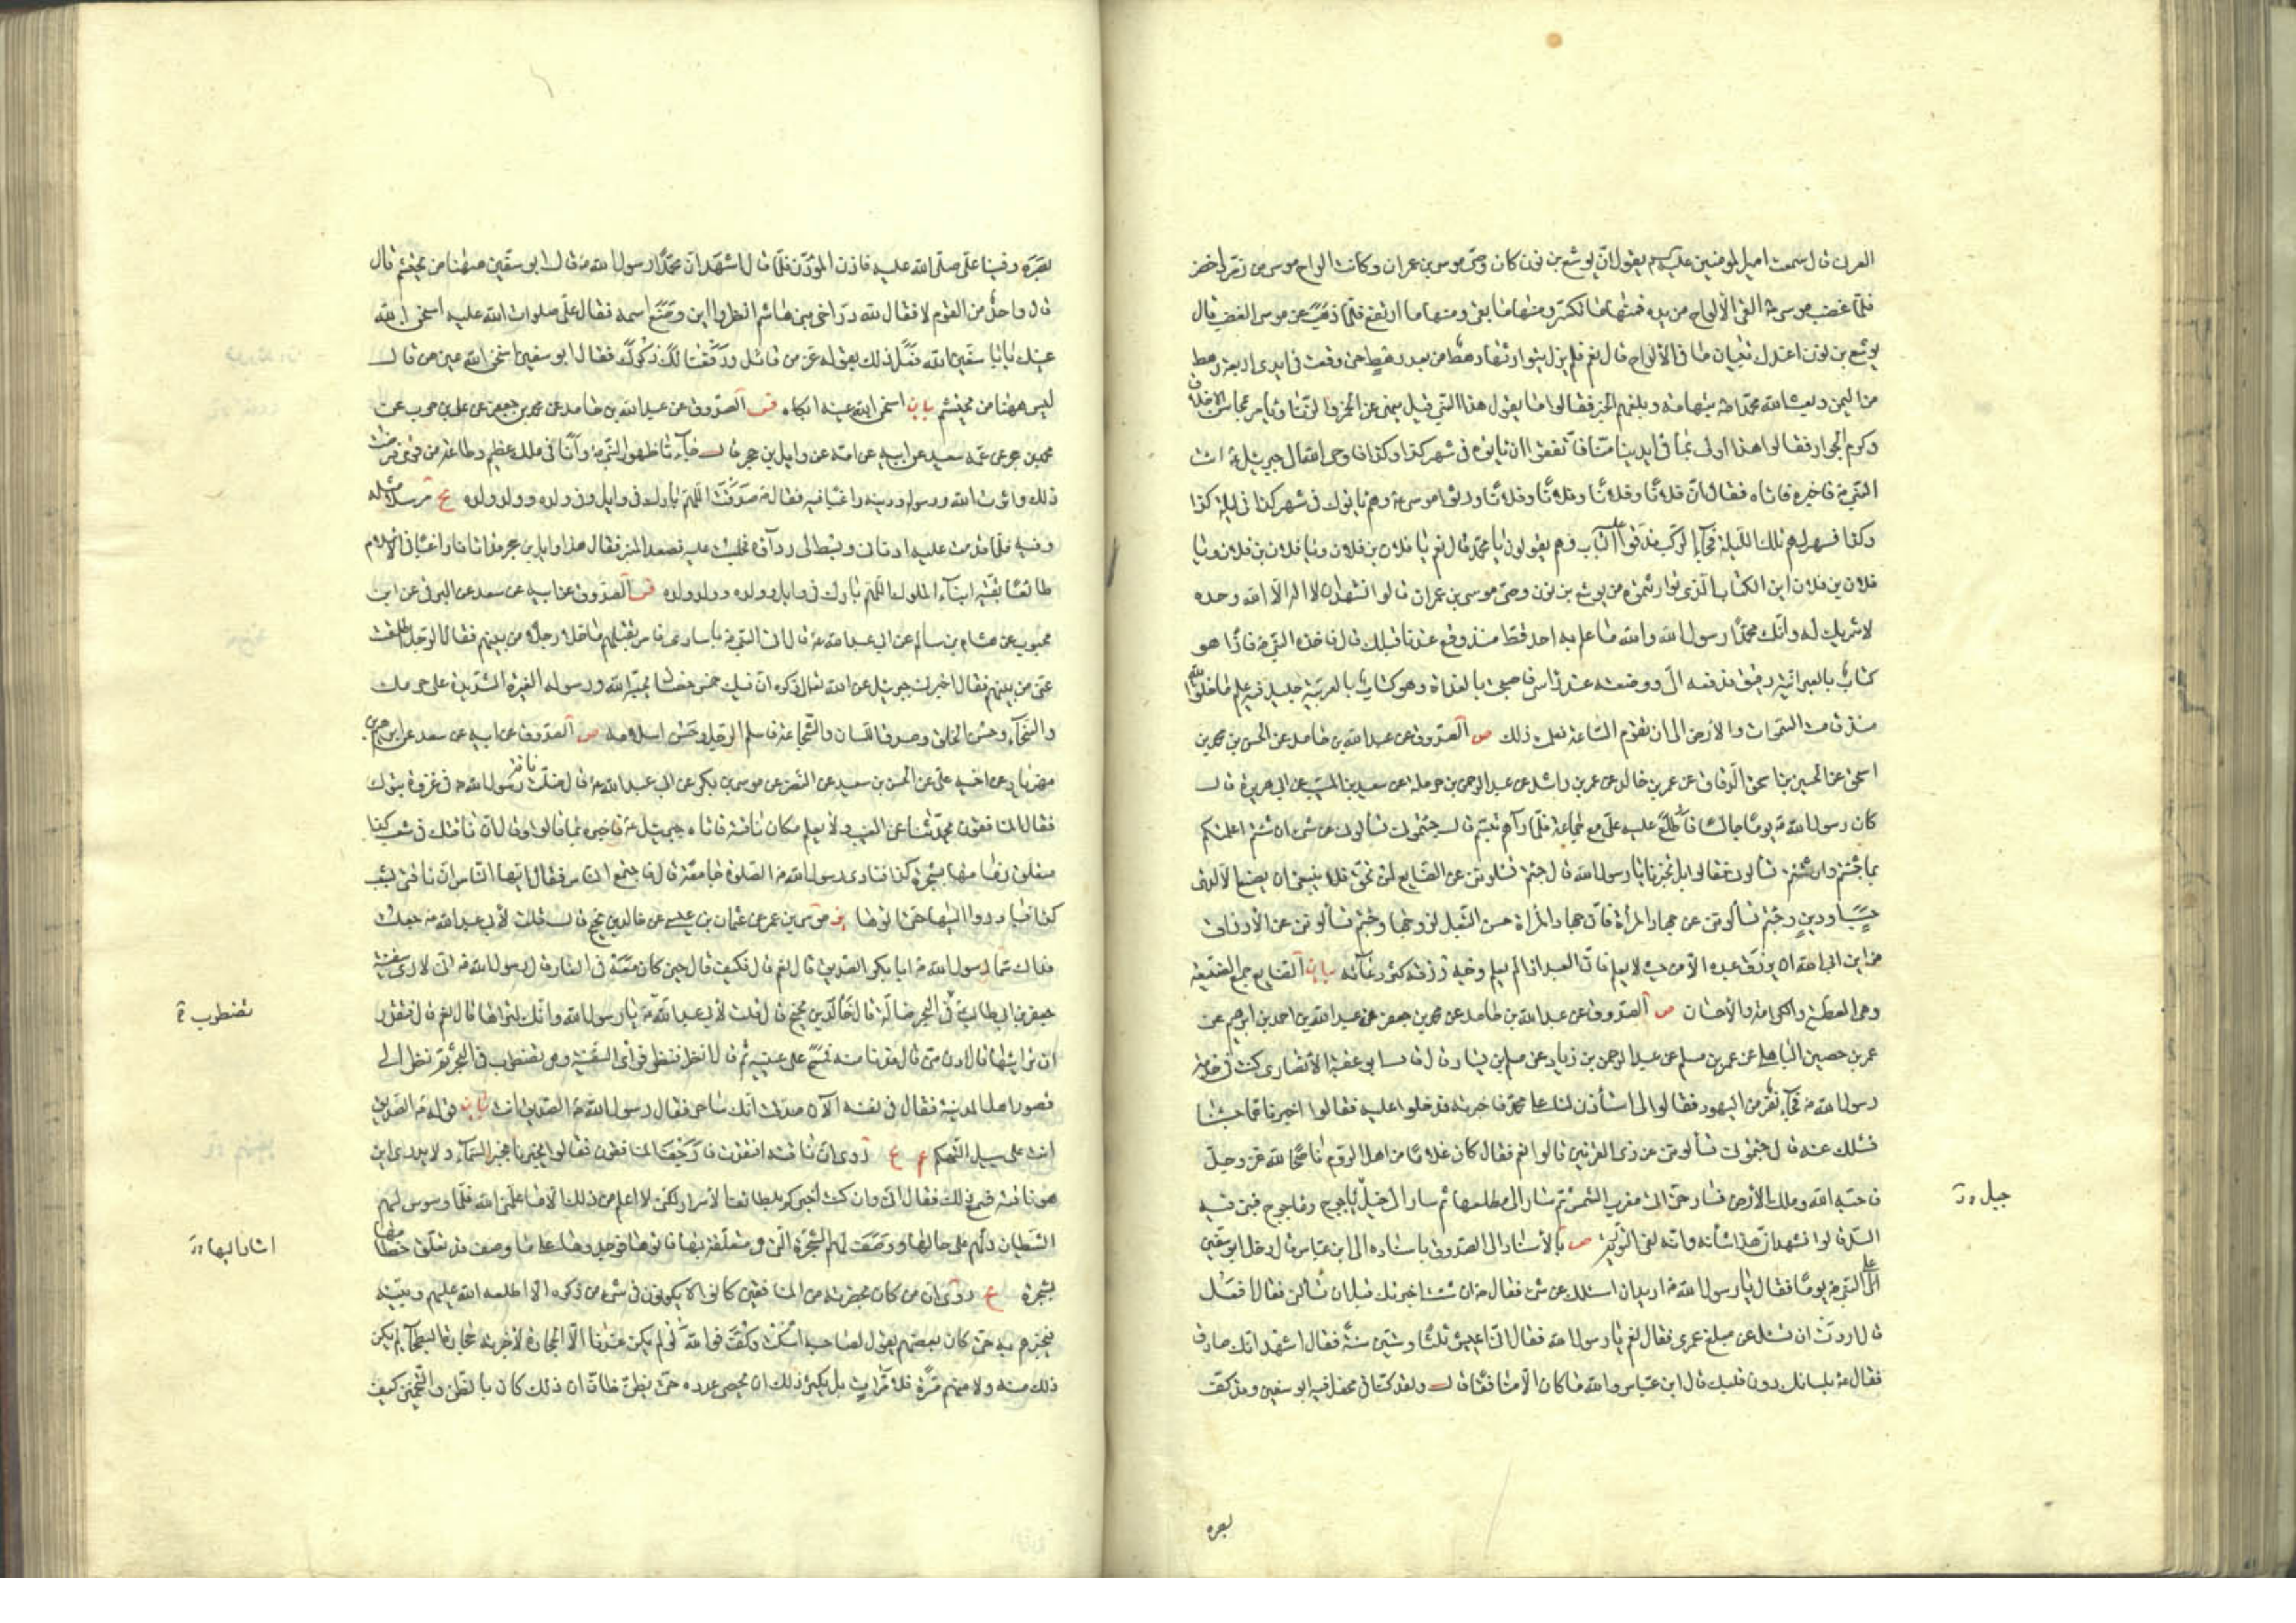 العرنى قال سمعت امير المومنين عليه السلم يقول ان يوشع بن نون كان وصى موسى بن عمران وكانت الواح موسى من زمرد اخضر
فلما غضب موسى ع القى الألواح من يده فمنها ما تكسر ومنها ما بقى ومنها ما ارتفع فلما ذهب عن موسى الغضب قال
يوشع بن نون اعندك تبيان ما فى الألواح قال نعم فلم يزل يتوارثها رهط من بعد رهط حتى وقعت فى ايدى اربعة رهط
من اليمن وبعث الله محمدا ص بتهامة وبلغهم الخبر فقالوا ما يقول هذا النبي قيل ينهى عن الخمر والزنا ويأمر بمحاسن الاخلاق
وكرم الجوار فقالوا هذا اولى بما فى ايدينا منا فاتفقوا ان يأتوه فى شهر كذا وكذا فاوحى الله الى جبرئيل ع ائت
النبى ص فاخبره فاتاه فقال ان فلانا وفلانا وفلانا وفلانا ورثوا الواح موسى ع وهم يأتوك فى شهر كذا فى ليلة كذا
وكذا فسهر لهم تلك الليلة فجآء الركب فدقوا عليه الباب وهم يقولون يا محمد قال نعم يا فلان بن فلان ويا فلان بن فلان ويا
فلان بن فلان اين الكتاب الذى توارثتموه من يوشع بن نون وصى موسى بن عمران قالوا نشهد ان لا اله الا الله وحده
لا شريك له وانك محمدا رسول الله والله ما علم به احد قط منذ وقع عندنا قبلك قال فاخذه النبى ص فاذا هو
كتاب بالعبرانية دقيق فدفعه الى ووضعته عند راسى فاصبحت بالغداة وهو كتاب بالعربية جليل فيه علم ما خلق الله
منذ قامت السموات والأرض الى ان تقوم الساعة فعلمت ذلك ص الصدوق عن عبد الله بن حامد عن الحسن بن محمد بن
اسحق عن الحسين بن اسحق الدقاق عن عمر بن خالد عن عمر بن راشد عن عبد الرحمن بن حرملة عن سعيد بن المسيب عن ابى هريرة قال
كان رسول الله ص يوما جالسا فاطلع عليه على مع جماعة فلما رآهم تبسم قال جئتمونى تسألونى عن شئ ان شئتم اعلمتكم
بما جئتم وان شئتم تسألونى فقالوا بل تخبرنا يا رسول الله قال جئتم تسألوننى عن الصنايع لمن تحق فلا ينبغى ان يصنع الا لذى
حسب او دين وجئتم تسألوننى عن جهاد المرأة فان جهاد المرأة حسن التبعل لزوجها وجئتم تسألوننى عن الأرزاق
من اين ابى الله ان يرزق عبده الا من حيث لا يعلم فان العبد اذا لم يعلم وجه رزقه كثر دعاؤه بيان الصنايع جمع الصنيعة
وهى العطية والكرامة والأحسان ص الصدوق عن عبد الله بن حامد عن محمد بن جعفر عن عبد الله بن احمد بن ابرهيم عن
عمر بن حصين الباهلى عن عمر بن مسلم عن عبد الرحمن بن زياد عن مسلم بن يسار قال قال ابو عقبة الأنصارى كنت فى خدمة
رسول الله ص فجآء نفر من اليهود فقالوا لى استأذن لنا على محمد فاخبرته فدخلوا عليه فقالوا اخبرنا عما جئنا
نسئلك عنه قال جئتمونى تسألوننى عن ذى القرنين قالوا نعم فقال كان غلاما من اهل الروم ناصحا لله عز وجل
فاحبه الله وملك الأرض فسار حتى اتى مغرب الشمس ثم سار الى مطلعها ثم سار الى خيل ياجوج وماجوج فبنى فيه
السد قالوا نشهد ان هذا شأنه وانه لفى التورية ص بالأسناد الى الصدوق باسناده الى ابن عباس قال دخل ابو سفين
على النبى ص يوما فقال يا رسول الله ص اريد ان اسئلك عن شئ فقال ص ان شئت اخبرتك قبل ان تسألنى فقال افعل
قال اردت ان تسئل عن مبلغ عمرى فقال نعم يا رسول الله فقال انى اعيش ثلثا وستين سنة فقال اشهد انك صادق
فقال ص بلسانك دون قلبك قال ابن عباس والله ما كان الا منافقا قال ولقد كنا فى محفل فيه ابو سفين وقد كف
جبل
بصره
بصره وفينا على صلى الله عليه فاذن المؤذن فلما قال اشهد ان محمدا رسول الله ص قال ابو سفين ههنا من يحتشم قال
قال واحد من القوم لا فقال لله در اخى بنى هاشم انظروا اين وضع اسمه فقال على صلوات الله عليه اسخن الله
عينك يا با سفين الله فعل ذلك بقوله عز من قائل ورفعنا لك ذكرك فقال ابو سفين اسخن الله عين من قال
ليس ههنا من يحتشم بيان اسخن الله عينه ابكاه ص الصدوق عن عبد الله بن حامد عن محمد بن جعفر عن على بن حرب عن
محمد بن حجر عن عمه سعيد عن ابيه عن امه عن وايل بن حجر قال جآءنا ظهور النبى ص وانا فى ملك عظيم وطاعة من قومى فرفضت
ذلك وآثرت الله ورسوله ودينه راغبا فيه فقال ص صدقت اللهم بارك فى وايل وفى ولده وولد ولده
طائعا بقية ابناء الملوك اللهم بارك فى وايل وولده وولد ولده ص الصدوق عن ابيه عن سعد عن البرقى عن ابن
محبوب عن هشام بن سالم عن ابى عبد الله ع قال اتى النبى ص باسارى فامر بقتلهم ما خلا رجلا من بينهم فقال الرجل كيف اطلقت
عنى من بينهم فقال اخبرنى جبرئيل عن الله تعالى ذكره ان فيك خمس خصال يحبه الله ورسوله الغيرة الشديدة على حرمك
والسخآء وحسن الخلق وصدق اللسان والشجاعة فاسلم الرجل وحسن اسلامه ص الصدوق عن ابيه عن سعد عن ابرهيم بن
مهزيار عن اخيه على عن الحسن بن سعيد عن النضر عن موسى بن بكر عن ابى عبد الله ع قال ضلت ناقة رسول الله ص فى غزوة تبوك
فقال المنافقون يحدثنا عن الغيب ولا يعلم مكان ناقته فاتاه جبرئيل ع فاخبره بما قالوا وقال ان ناقتك فى شعب كذا
متعلق زمامها بشجرة كذا فنادى رسول الله ص الصلوة جامعة قال فاجتمع الناس فقال ايها الناس ان ناقتى بشعب
كذا فبادروا اليها حتى اتوها ير موسى بن عمر عن عثمان بن عيسى عن خالد بن نجيح قال قلت لأبى عبد الله ع جعلت
فداك سما رسول الله ص ابا بكر الصديق قال نعم قال فكيف قال حين كان معه فى الغار قال رسول الله ص انى لارى سفينة
جعفر بن ابى طالب فى البحر ضالة قال خالد بن نجيح قال قلت لأبى عبد الله ع يا رسول الله وانك لتراها قال نعم قال فتقدر
ان ترانيها قال ادن منى قال فدنا منه فمسح على عينيه ثم قال انظر فنظر فرأى السفينة وهى تضطرب فى البحر ثم نظر الى
قصور اهل المدينة فقال فى نفسه الآن صدقت انك ساحر فقال رسول الله ص الصديق انت بيان قوله ص الصديق
انت على سبيل التهكم روى ان ناقته افتقدت فارجفت المنافقون فقالوا يخبرنا بخبر السمآء ولا يدرى اين
هو ناقته فسمع ذلك فقال انى وان كنت اخبركم بلطائف الأسرار لكنى لا اعلم من ذلك الا ما علمنى الله فلما وسوس لهم
الشيطان دلهم على حالها ووصفت لهم الشجرة التى هى متعلقة بها فاتوها فوجدوها على ما وصف قد تعلق خطامها
بشجرة روى ان من كان بحضرته من المنافقين كانوا لا يكونون فى شئ من ذكره الا اطلعه الله عليهم وبينه
فيخبرهم به حتى كان بعضهم يقول لصاحبه اسكت وكف فوالله لو لم يكن عندنا الا الحجارة لأخبرته حجارة البطحآء لم يكن
ذلك منه ولا منهم مرة ولا مرات بل يكثر ذلك ان يحصى عدده حتى يظن ظان ان ذلك كان بالظن والتخمين كيف
تضطرب